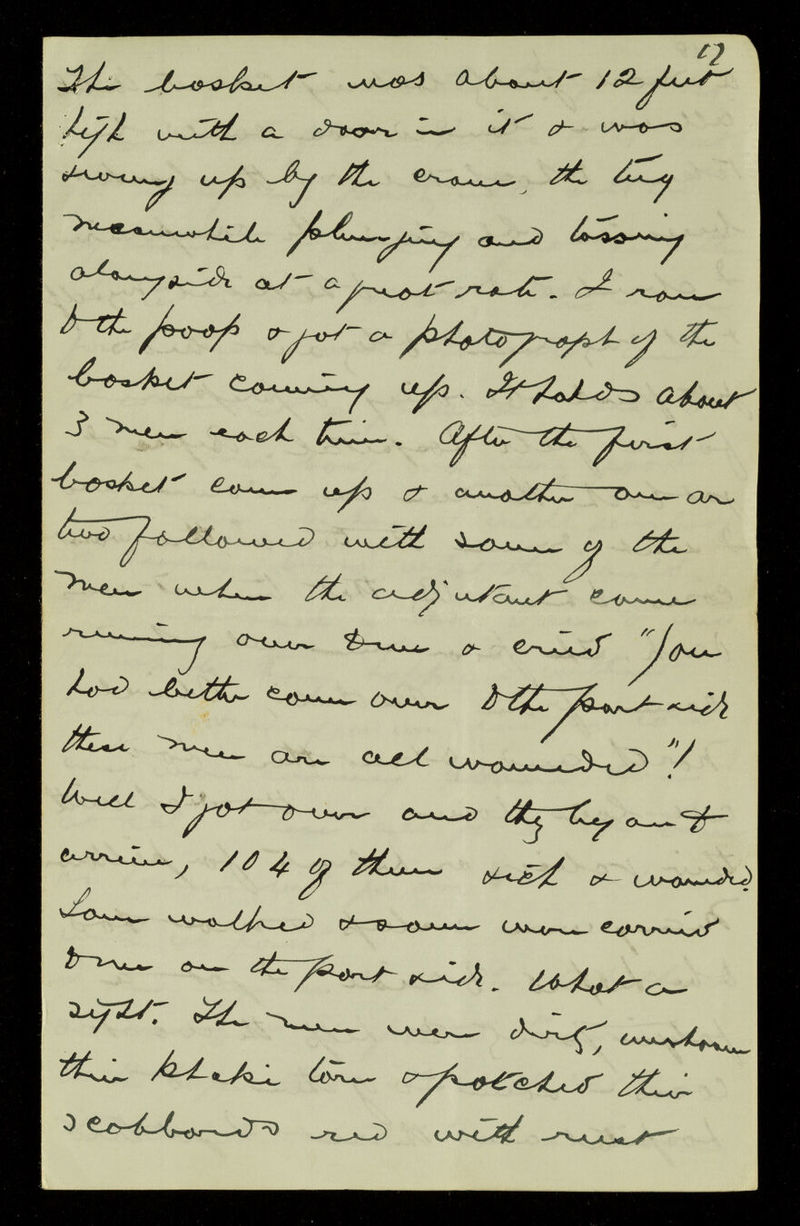 17
The basket was about 12 feet
high with a door in it & was
swung up by the crane, the tug
meanwhile plunging and tossing
alongside at a great rate. I ran
to the poop & got a photograph of the
basket coming up. It holds about
3 men each time. After the first
basket came up & another one or
two followed with some of the
men when the adjutant came
running over to me & cried "You
had better come over to the port side
these men are all wounded"!
Well I got over and they began to
arrive, 104 of them sick & wounded.
Some walked & some were carried
to me on the port side. What a
sight. The men were dirty, unshaven
their khaki torn & patched their
scabbards red with rust